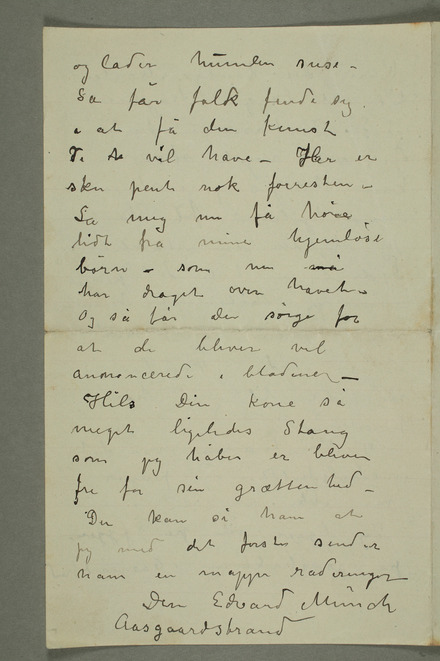 og lader humlen suse –
Så får folk finde sig
i at få den Kunst
De vil have – Her er
sken pent nok forresten –
La mig nu få høre
lidt fra mine hjemløse
børn – som nu
har draget over havet –
Og så får du sørge for
at de bliver vel
annoncerede i bladene –
Hils Din kone så
meget ligeledes Stang
som jeg håber er bleven
fri for sin grættenhed –
Du kan si ham at
jeg med det første sender
ham en mappe raderinger
Din Edvard Munch
Aasgaardstrand